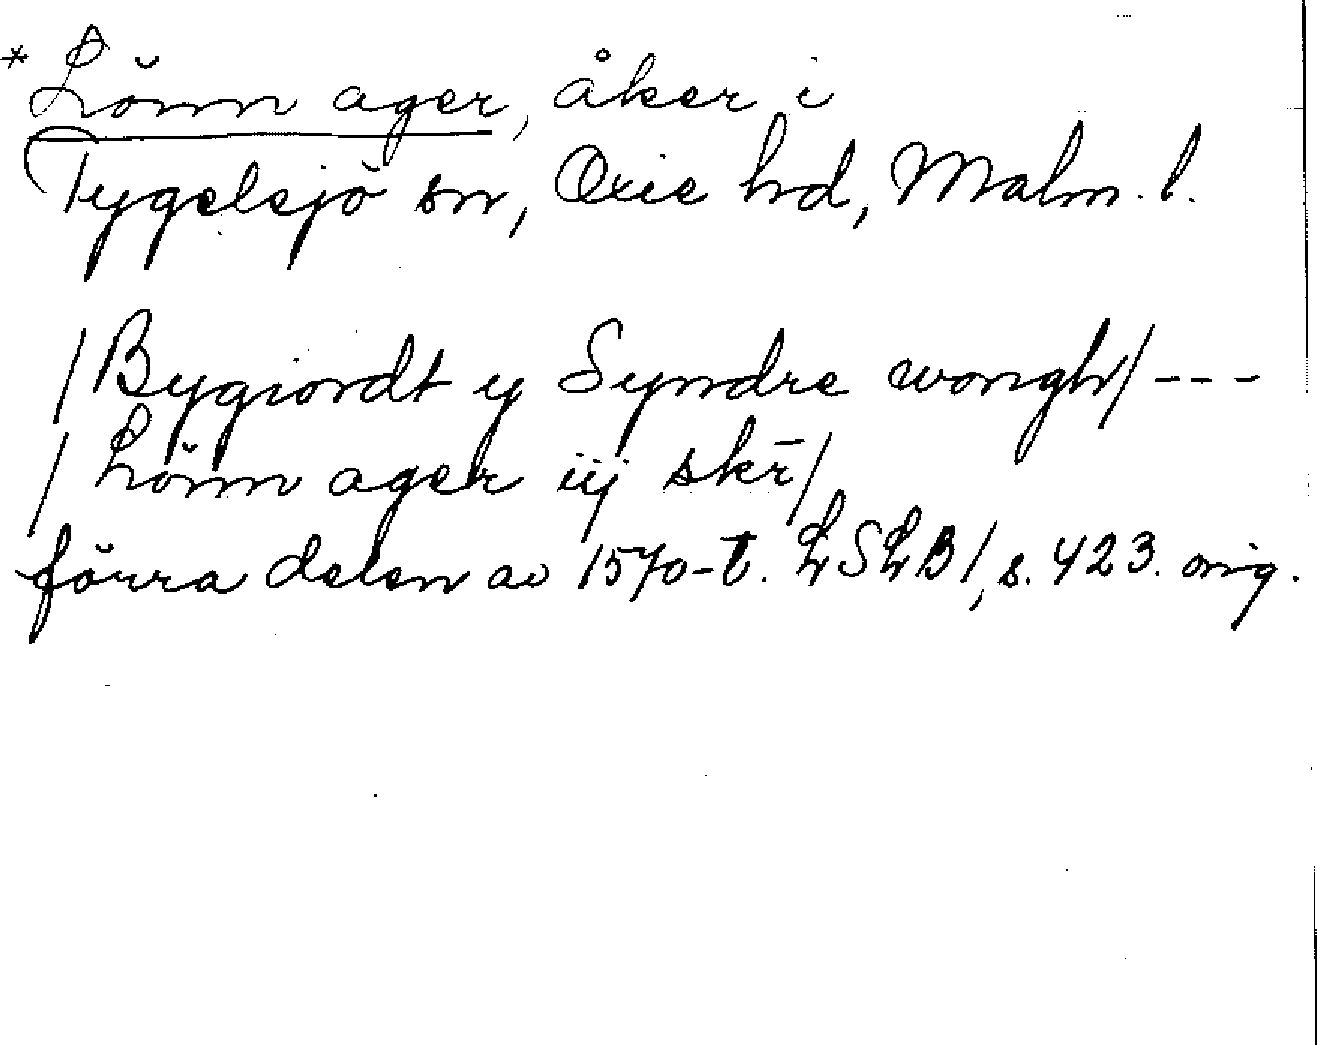 * Lönn ager, åker i
Tygelsjö sn, Oxie hd, Malm. l.
/Bygiordt ij Syndre wongh/ ---
/Lönn ager iij skr̄/
förra delen av 1570-t. LSLB1, s. 423. orig.